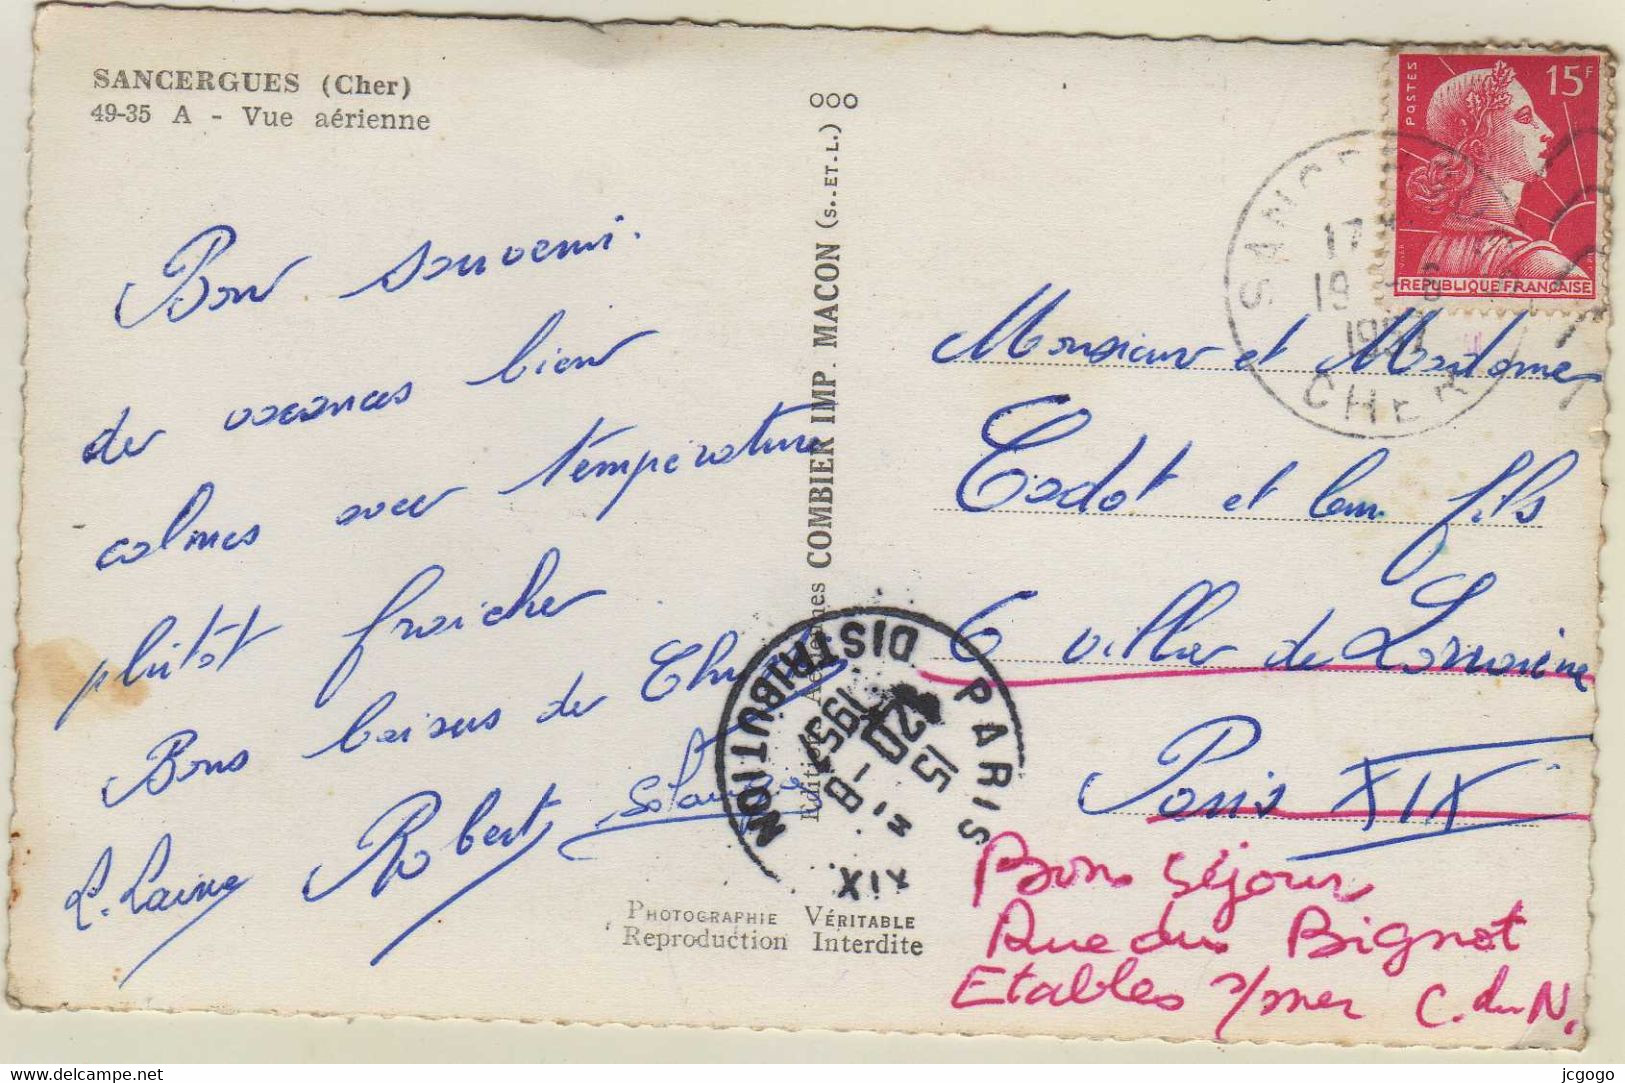 SANCERGUES (Cher)
49-35 A - Vue aérienne
Bon souvenir
de vacances bien
calmes avec température
plutôt fraiche
Bons baisers de
L. Laine Robert Solange
PHOTOGRAPHIE VÉRITABLE
Reproduction Interdite
COMBIER IMP. MACON (S.-ET-L.) OOO
POSTES 15F
REPUBLIQUE FRANÇAISE
17
19
CHER
PARIS XIX
DISTRIBUTION
15
20 - 8
1957
Monsieur et Madame
Cadot et leur fils
6 villa de Lorraine
Paris XIX
Bon séjour
Rue du Bignot
Etables s/mer C. du N.
Delcampe.net
jcgogo